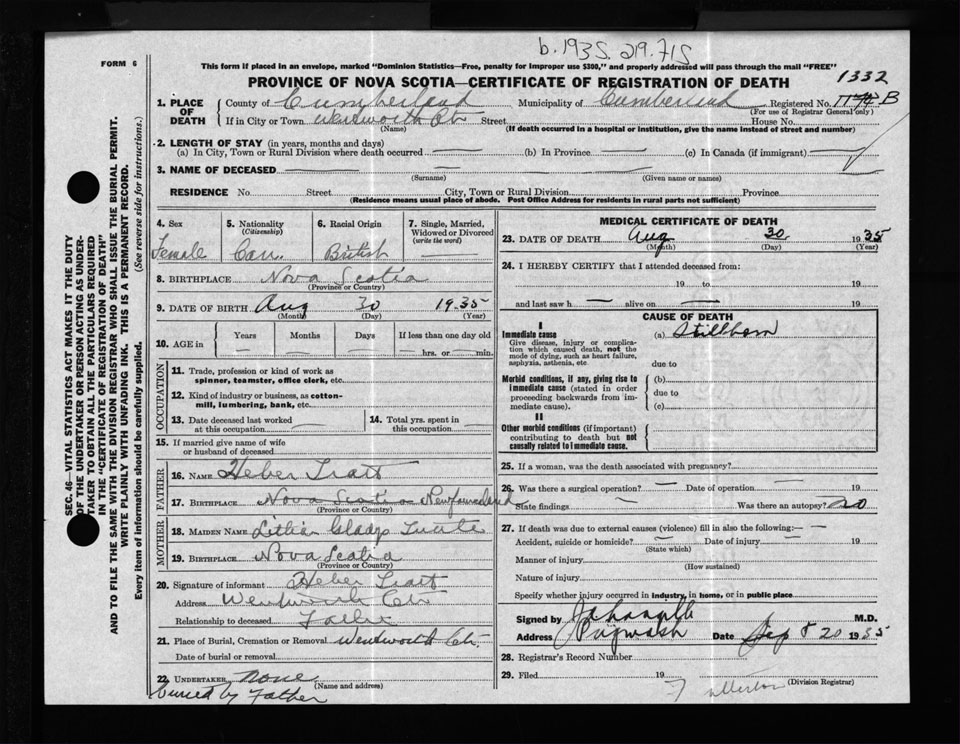 b. 1935. 219.715
FORM 6
This form if placed in an envelope, marked "Dominion Statistics—Free, penalty for improper use $300," and properly addressed will pass through the mail "FREE"
PROVINCE OF NOVA SCOTIA—CERTIFICATE OF REGISTRATION OF DEATH
1332
1. PLACE OF DEATH
County of Cumberland Municipality of Cumberland Registered No. B
(For use of Registrar General only)
If in City or Town Wentworth Ctr Street House No.
(Name) (If death occurred in a hospital or institution, give the name instead of street and number)
2. LENGTH OF STAY (in years, months and days)
(a) In City, Town or Rural Division where death occurred — (b) In Province — (c) In Canada (if immigrant) —
3. NAME OF DECEASED — — —
(Surname) (Given name or names)
RESIDENCE No. Street City, Town or Rural Division Province
(Residence means usual place of abode. Post Office Address for residents in rural parts not sufficient)
4. Sex
Female
5. Nationality
(Citizenship)
Can.
6. Racial Origin
British
7. Single, Married, Widowed or Divorced
(write the word)
—
8. BIRTHPLACE Nova Scotia
(Province or Country)
9. DATE OF BIRTH Aug 30 1935
(Month) (Day) (Year)
10. AGE in
Years Months Days If less than one day old
— — — hrs. or — min.
OCCUPATION
11. Trade, profession or kind of work as spinner, teamster, office clerk, etc.
12. Kind of industry or business, as cotton-mill, lumbering, bank, etc.
13. Date deceased last worked at this occupation —
14. Total yrs. spent in this occupation —
15. If married give name of wife or husband of deceased
FATHER
16. NAME Heber
17. BIRTHPLACE Nova Scotia Newfoundland
(Province or Country)
MOTHER
18. MAIDEN NAME
19. BIRTHPLACE Nova Scotia
(Province or Country)
20. Signature of informant Heber
Address Wentworth Ctr
Relationship to deceased Father
21. Place of Burial, Cremation or Removal Wentworth Ctr.
Date of burial or removal
22. UNDERTAKER None
(Name and address)
buried by Father
MEDICAL CERTIFICATE OF DEATH
23. DATE OF DEATH Aug 30 1935
(Month) (Day) (Year)
24. I HEREBY CERTIFY that I attended deceased from:
19 to 19
and last saw h — alive on — 19
CAUSE OF DEATH
I
Immediate cause
Give disease, injury or complication which caused death, not the mode of dying, such as heart failure, asphyxia, asthenia, etc
(a) Stillborn
due to
Morbid conditions, if any, giving rise to immediate cause (stated in order proceeding backwards from immediate cause).
(b)
due to
(c)
II
Other morbid conditions (if important) contributing to death but not causally related to immediate cause.
25. If a woman, was the death associated with pregnancy?
26. Was there a surgical operation? — Date of operation — 19
State findings — Was there an autopsy? no
27. If death was due to external causes (violence) fill in also the following: —
Accident, suicide or homicide? — Date of injury — 19
(State which)
Manner of injury
(How sustained)
Nature of injury
Specify whether injury occurred in industry, in home, or in public place
Signed by M.D.
Address Pugwash Date Sep 20 1935
28. Registrar's Record Number
29. Filed 19
(Division Registrar)
SEC. 46—VITAL STATISTICS ACT MAKES IT THE DUTY
OF THE UNDERTAKER OR PERSON ACTING AS UNDERTAKER TO OBTAIN ALL THE PARTICULARS REQUIRED
IN THE "CERTIFICATE OF REGISTRATION OF DEATH"
AND TO FILE THE SAME WITH THE DIVISION REGISTRAR WHO SHALL ISSUE THE BURIAL PERMIT.
WRITE PLAINLY WITH UNFADING INK. THIS IS A PERMANENT RECORD.
Every item of information should be carefully supplied. (See reverse side for instructions.)